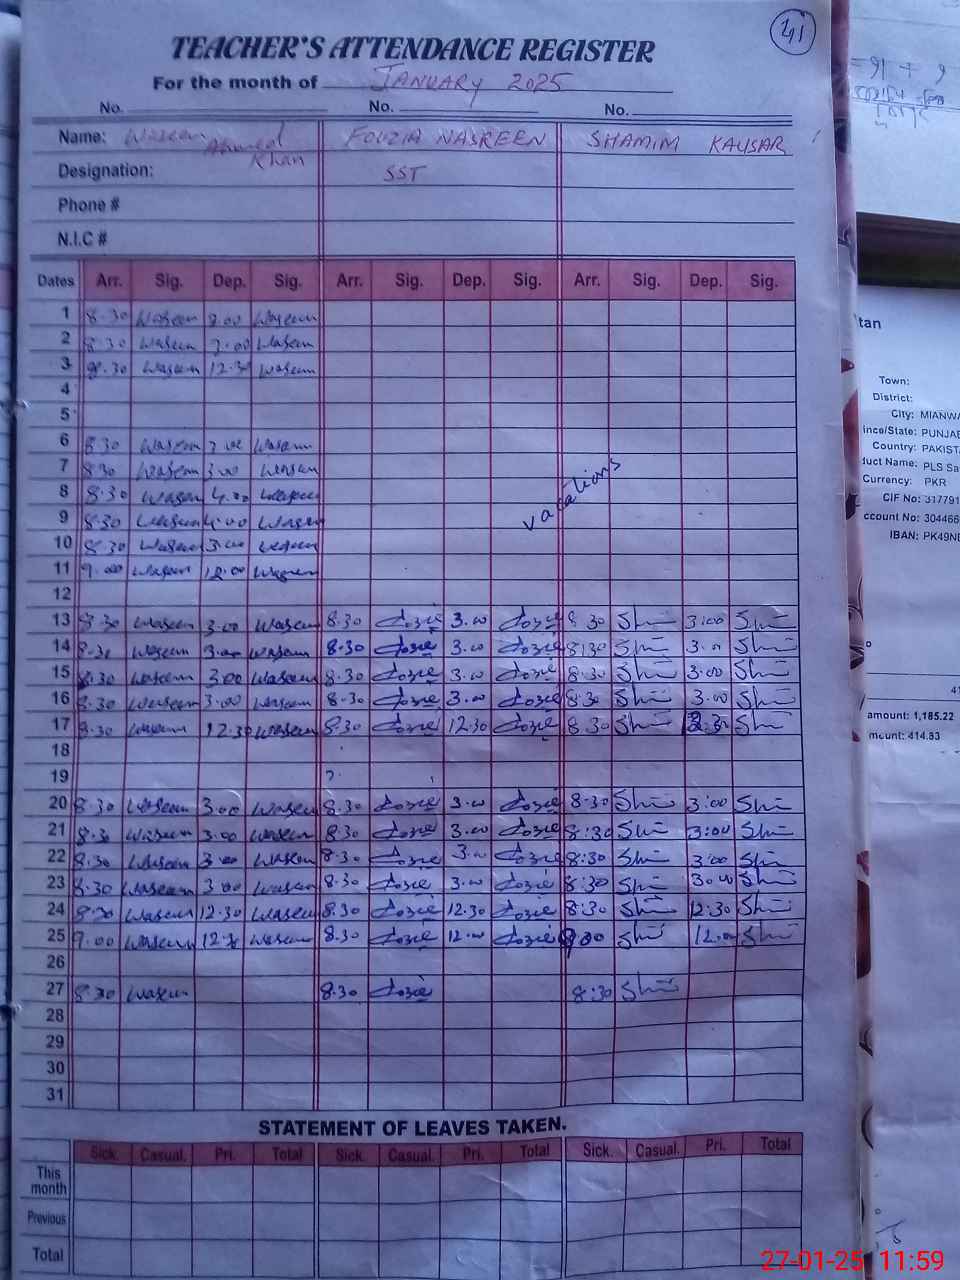 41
TEACHER'S ATTENDANCE REGISTER
For the month of JANUARY 2025
No. No. No.
Name: Waseem Ahmed Khan FOUZIA NASREEN SHAMIM KAUSAR
Designation: SST
Phone #
N.I.C #
Dates Arr. Sig. Dep. Sig. Arr. Sig. Dep. Sig. Arr. Sig. Dep. Sig.
1 8.30 Waseem 3.00 Waseem
2 8.30 Waseem 3.00 Waseem
3 8.30 Waseem 12.30 Waseem
4
5
6 8.30 Waseem 3.00 Waseem
7 8.30 Waseem 3.00 Waseem
8 8.30 Waseem 4.00 Waseem
vacations
9 8.30 Waseem 4.00 Waseem
10 8.30 Waseem 3.00 Waseem
11 9.00 Waseem 12.00 Waseem
12
13 8.30 Waseem 3.00 Waseem 8.30 3.00 8.30 3:00
14 8.30 Waseem 3.00 Waseem 8.30 3.00 8:30 3.00
15 8.30 Waseem 3.00 Waseem 8.30 3.00 8.30 3.00
16 8.30 Waseem 3.00 Waseem 8.30 3.00 8.30 3.00
17 8.30 Waseem 12.30 Waseem 8.30 12.30 8.30 12.30
18
19
20 8.30 Waseem 3.00 Waseem 8.30 3.00 8.30 3:00
21 8.30 Waseem 3.00 Waseem 8.30 3.00 8:30 3:00
22 8.30 Waseem 3.00 Waseem 8.30 3.00 8:30 3:00
23 8.30 Waseem 3.00 Waseem 8.30 3.00 8:30 3.00
24 8.30 Waseem 12.30 Waseem 8.30 12.30 8:30 12:30
25 9.00 Waseem Waseem 8.30 12.00 12.00
26
27 8.30 Waseem 8.30 8:30
28
29
30
31
STATEMENT OF LEAVES TAKEN.
Sick. Casual. Pri. Total Sick. Casual. Pri. Total Sick. Casual. Pri. Total
This month
Previous
Total
tan
Town:
District:
City: MIANWA
ince/State: PUNJAB
Country: PAKIST
duct Name: PLS Sa
Currency: PKR
CIF No: 317791
ccount No: 304466
IBAN: PK49NB
amount: 1,185.22
mount: 414.83
27-01-25 11:59